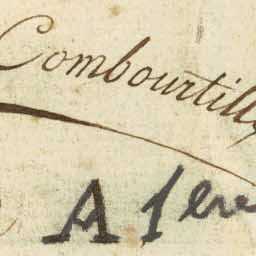 Combourtill
A 1ere